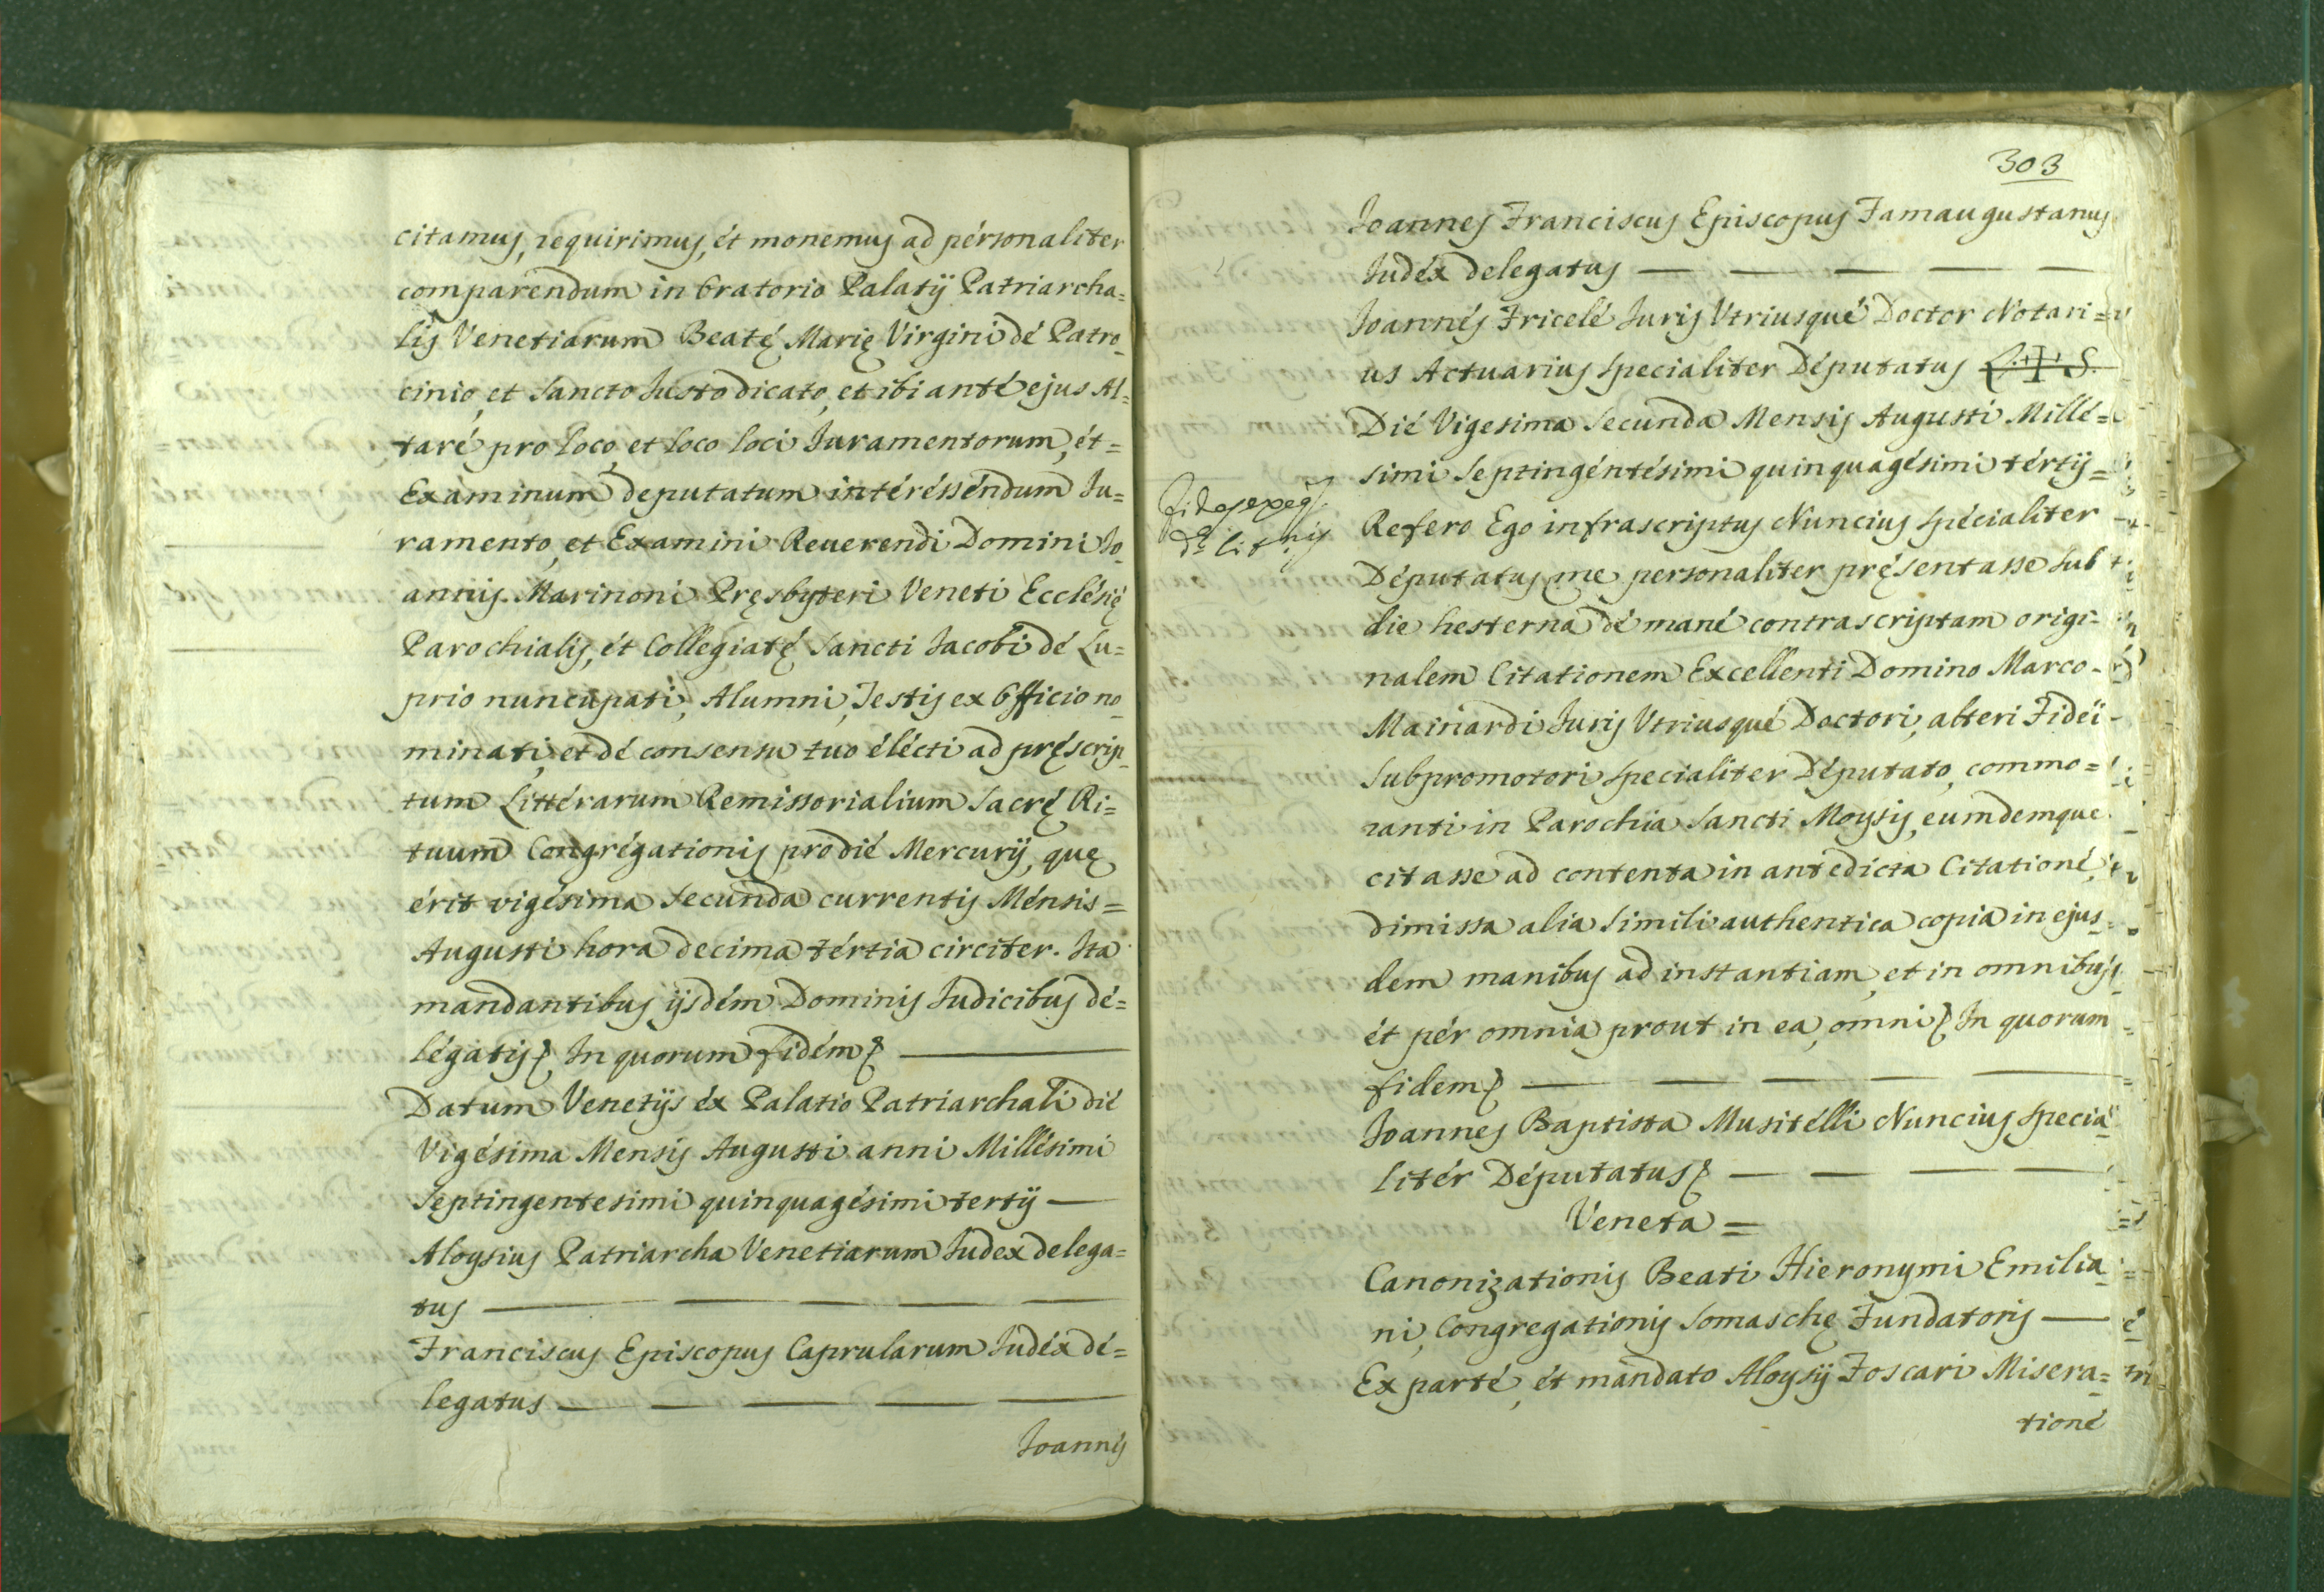 citamus, requirimus, et monemus ad personaliter
comparendum in Oratorio Palatij Patriarcha=
lis Venetiarum Beatę Marię Virgini de Patro_
cinio, et Sancto Iusto dicato, et ibi ante ejus Al=
tare pro loco, et loco loci Iuramentorum, et=
Examinum deputatum interessendum Iu=
ramento, et Examini Reuerendi Domini Io_
annis Marinoni Pręsbyteri Veneti Ecclesię
Parochialis, et Collegiatę Sancti Iacobi de Lu=
prio nuncupati, Alumni, Testis ex Officio no_
minati, et de consensu tuo electi ad pręscrip_
tum Litterarum Remissorialium Sacrę Ri=
tuum Congregationis pro die Mercurij, quę
erit vigesima secunda currentis Mensis=
Augusti hora decima tertia circiter. Ita
mandantibus ijsdem Dominis Iudicibus de=
legatis In quorum fidem —
Datum Venetijs ex Palatio Patriarchali die
Vigesima Mensis Augusti anni Millesimi
Septingentesimi quinquagesimi tertij —
Aloysius Patriarcha Venetiarum Iudex delega=
tus — — — — —
Franciscus Episcopus Caprularum Iudex de=
legatus — — — — —
Ioannes
303
Ioannes Franciscus Episcopus Famaugustanus
Iudex delegatus — — — — —
Ioannes Fricelè Iuris Vtriusque Doctor Notari=
us Actuarius specialiter Deputatus L.✝S.
Die Vigesima secunda Mensis Augusti Mille=
simi septingentesimi quinquagesimi tertij=
Refero Ego infrascriptus Nuncius specialiter
Deputatus, me personaliter pręsentasse sub
die hesterna de mane contrascriptam origi=
nalem Citationem Excellenti Domino Marco-
Mainardi Iuris Vtriusque Doctori, alteri Fidei
Subpromotori specialiter Deputato, commo=
ranti in Parochia Sancti Moysis, eumdemque
citasse ad contenta in antedicta Citatione,
dimissa alia simili authentica copia in ejus_
dem manibus ad instantiam, et in omnibus,
et per omnia prout in ea, omni In quorum
fidem — — — —
Ioannes Baptista Musitelli Nuncius specia_
liter Deputatus — — — —
Veneta=
Canonizationis Beati Hieronymi Emilia_
ni, Congregationis Somaschę Fundatoris —
Ex parte, et mandato Aloysij Foscari Misera=
tione